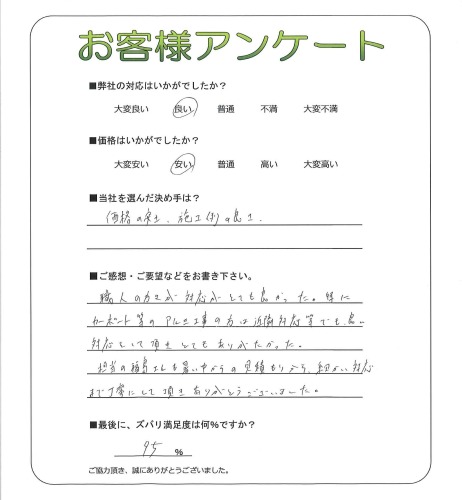 お客様アンケート
■弊社の対応はいかがでしたか？
大変良い 良い 普通 不満 大変不満
■価格はいかがでしたか？
大変安い 安い 普通 高い 大変高い
■当社を選んだ決め手は？
価格の安さ、施工例の良さ、
■ご感想・ご要望などをお書き下さい。
職人の方々が対応がとても良かった。特に
カーポート等のアルミ工事の方は近隣対応等でも良い
対応をして頂きとてもありがたかった。
担当の福島さんも暑い中からの見積もりから、細かい対応
まで丁寧にして頂きありがとうございました。
■最後に、ズバリ満足度は何％ですか？
95 %
ご協力頂き、誠にありがとうございました。